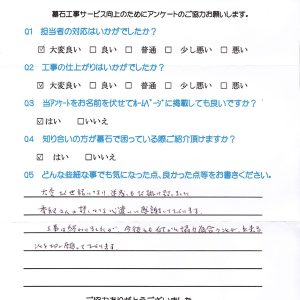 墓石工事サービス向上のためにアンケートのご協力お願いします。
Q1 担当者の対応はいかがでしたか?
☑ 大変良い □ 良い □ 普通 □ 少し悪い □ 悪い
Q2 工事の仕上がりはいかがでしたか?
☑ 大変良い □ 良い □ 普通 □ 少し悪い □ 悪い
Q3 当アンケートをお名前を伏せてホームページに掲載しても良いですか?
☑ はい □いいえ
Q4 知り合いの方が墓石で困っている際ご紹介頂けますか?
☑ はい □ いいえ
Q5 どんな些細な事でも気になった点、良かった点等をお書きください。
大変お世話になり
感謝しております。
工事は終わりましたが、今後も
願っております。
ご協力ありがとうございました